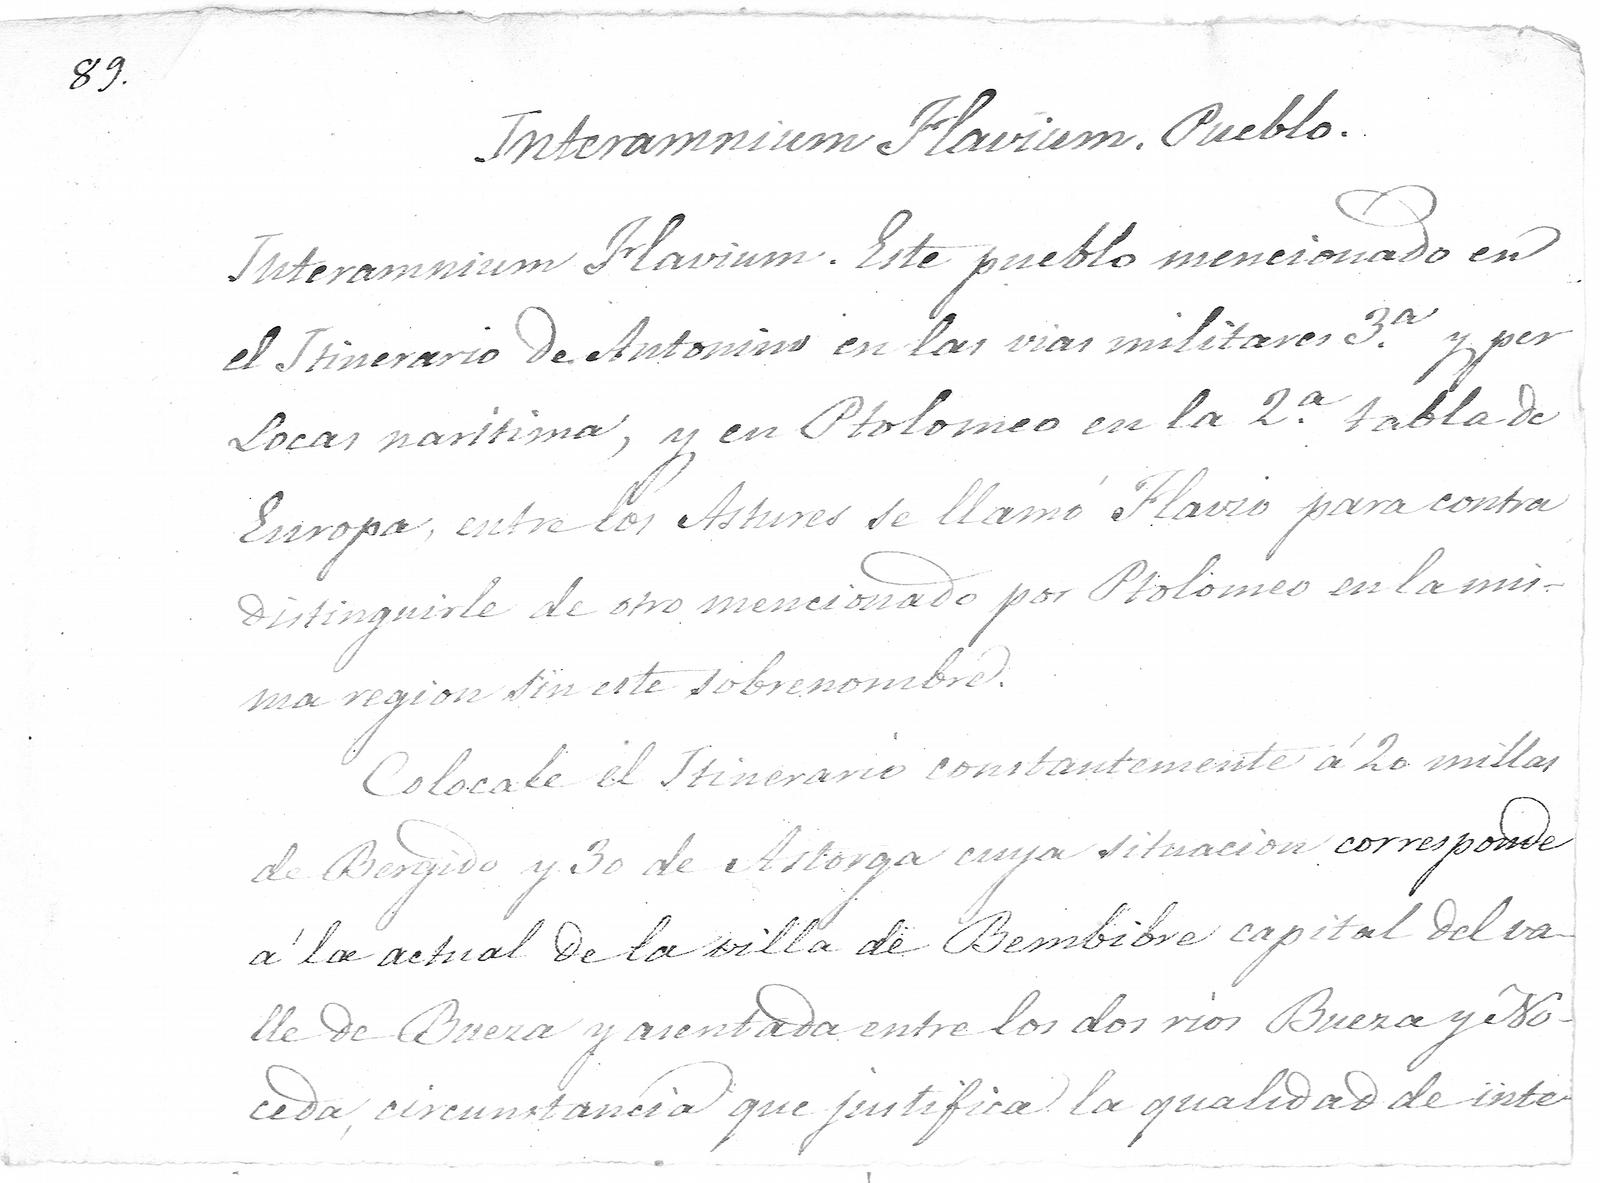 89.
Interamnium Flavium. Pueblo.
Interamnium Flavium. Este pueblo mencionado en
el Itinerario de Antonino en las vias militares 3.ª y per
Locas naritima, y en Ptolomeo en la 2.ª tabla de
Europa, entre los Astures se llamó Flavio para contra
distinguirle de otro mencionado por Ptolomeo en la mis-
ma region sin este sobrenombre.
Colocale el Itinerario constantemente á 20 millas
de Bergido y 30 de Astorga cuya situacion corresponde
á la actual de la villa de Bembibre capital del va-
lle de Bueza y asentada entre los dos rios Bueza y No-
ceda, circunstancia que justifica la qualidad de inte-